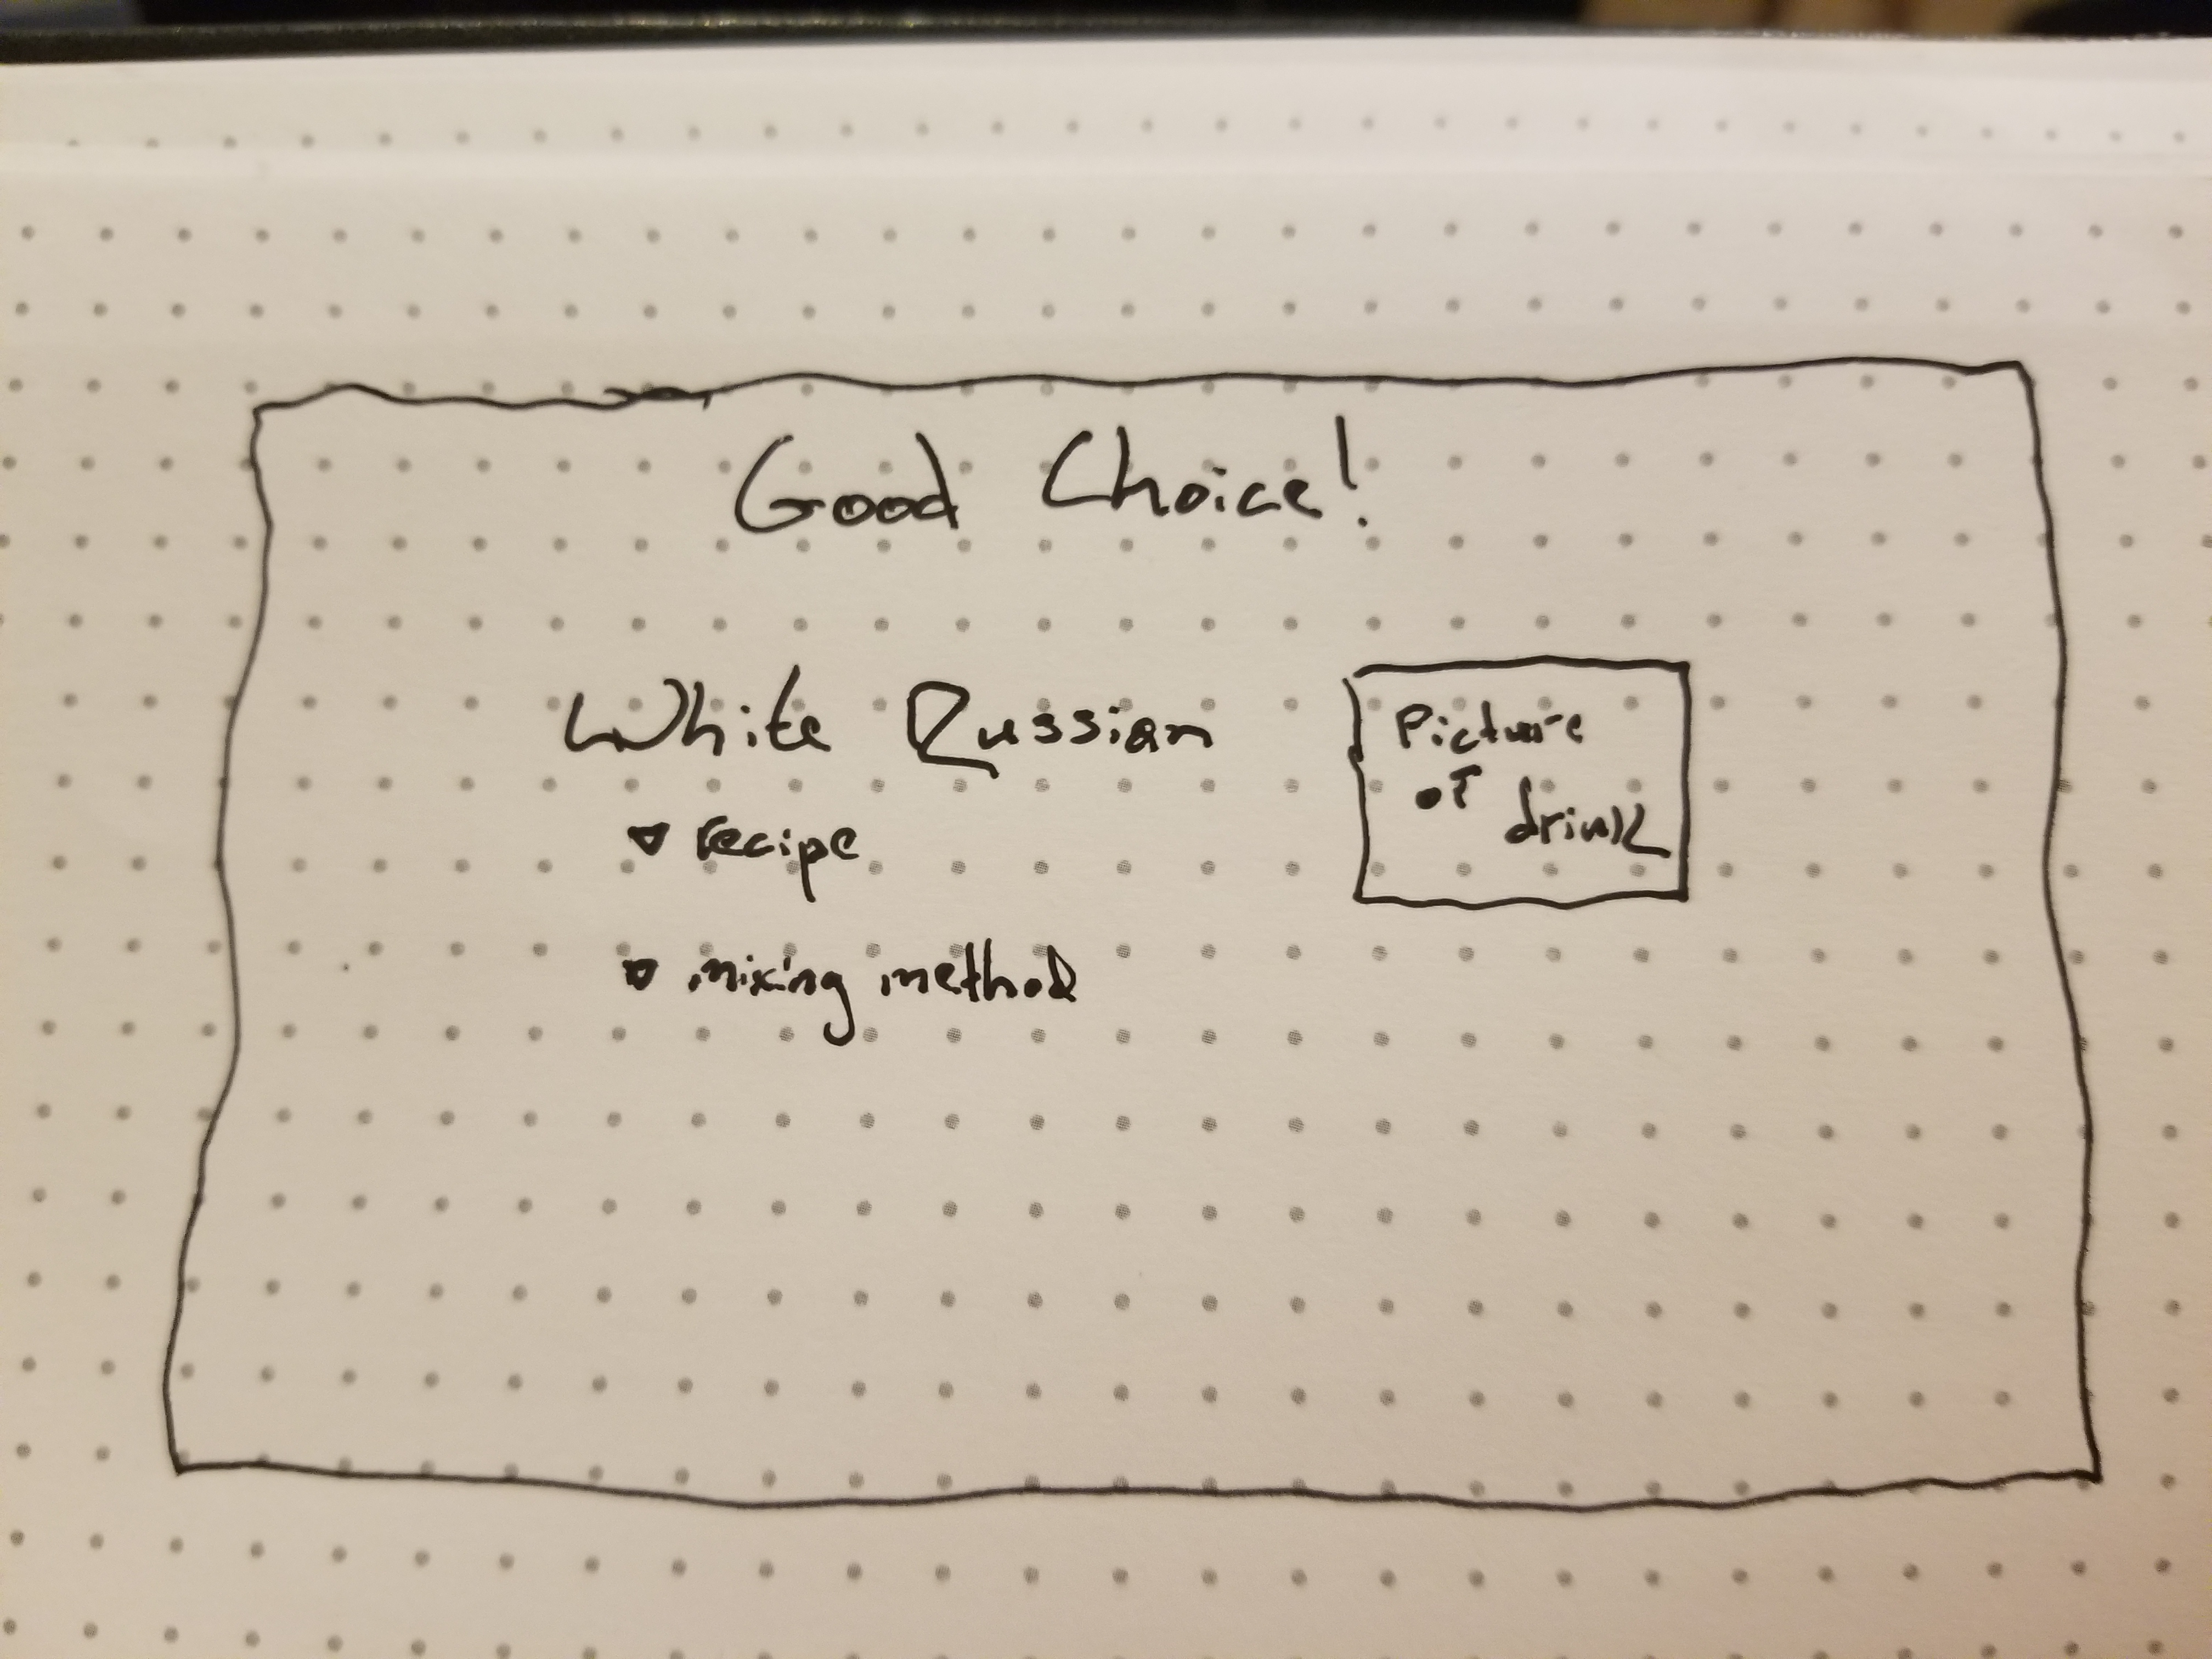 Good Choice!
White Russian
recipe
mixing method
Picture
of
drink